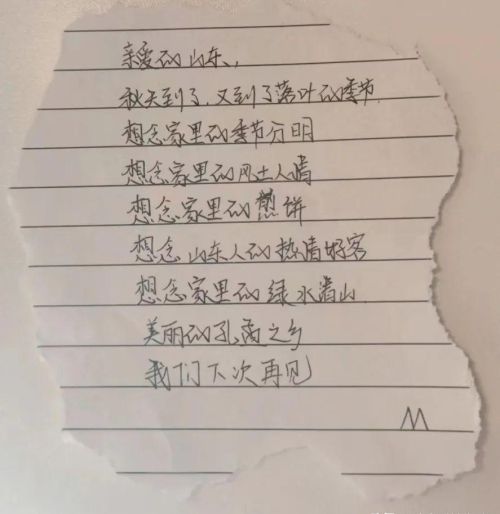 亲爱的山东,
秋天到了,又到了落叶的季节.
想念家里的季节分明
想念家里的风土人情
想念家里的煎饼
想念山东人的热情好客
想念家里的绿水清山.
美丽的孔孟之乡
我们下次再见
M